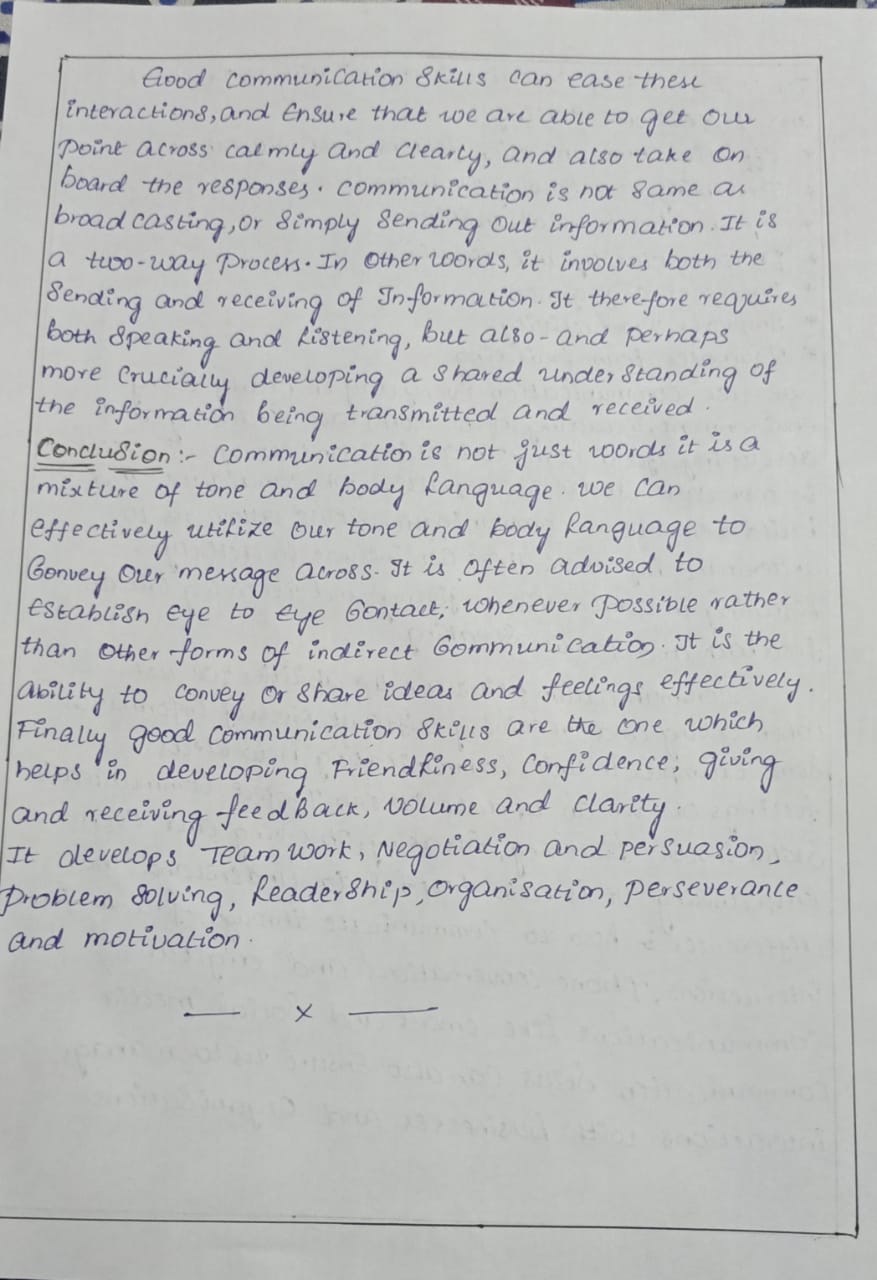 Good communication Skills can ease these
interactions, and Ensure that we are able to get our
point across calmly and clearly, and also take on
board the responses. communication is not same as
broad casting, or Simply Sending out information. It is
a two-way process. In other words, it involves both the
Sending and receiving of Information. It therefore requires
both Speaking and Listening, but also - and perhaps
more crucially developing a shared understanding of
the information being transmitted and received.
Conclusion :- Communication is not just words it is a
mixture of tone and body Language. we can
effectively utilize our tone and body Language to
Convey our message across. It is often advised to
Establish eye to eye Contact, whenever possible rather
than other forms of indirect Communication. It is the
ability to convey or share ideas and feelings effectively.
Finally good communication Skills are the one which
helps in developing Friendliness, Confidence, giving
and receiving feedBack, volume and clarity.
It develops Team work, Negotiation and persuasion,
Problem Solving, Leadership, Organisation, perseverance
and motivation.
— x —